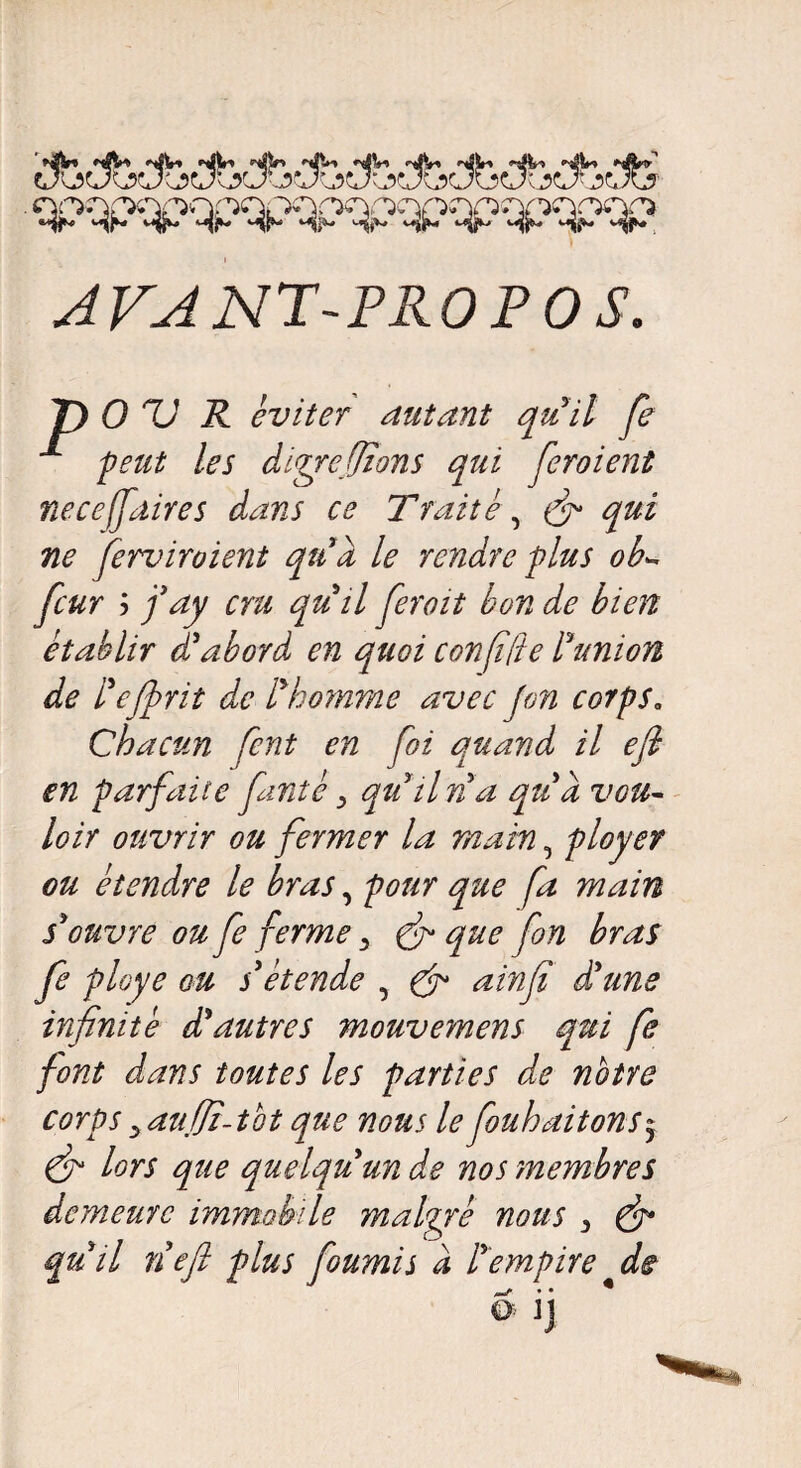 AVANT-PROPOS.
POVR éviter autant qu'il ſe
peut les digreſſions qui ſeroient
neceſſaires dans ce Traité, & qui
ne ſerviroient qu'à le rendre plus ob-
ſcur ; j'ay cru qu'il ſeroit bon de bien
établir d'abord en quoi conſiſte l'union
de l'eſprit de l'homme avec ſon corps.
Chacun ſent en ſoi quand il eſt
en parfaite ſanté, qu'il n'a qu'à vou-
loir ouvrir ou fermer la main, ployer
ou étendre le bras, pour que ſa main
s'ouvre ou ſe ferme, & que ſon bras
ſe ploye ou s'étende, & ainſi d'une
infinité d'autres mouvemens qui ſe
font dans toutes les parties de nôtre
corps, auſſi-tôt que nous le ſouhaitons;
& lors que quelqu'un de nos membres
demeure immobile malgré nous, &
qu'il n'eſt plus ſoumis à l'empire de
õ ij